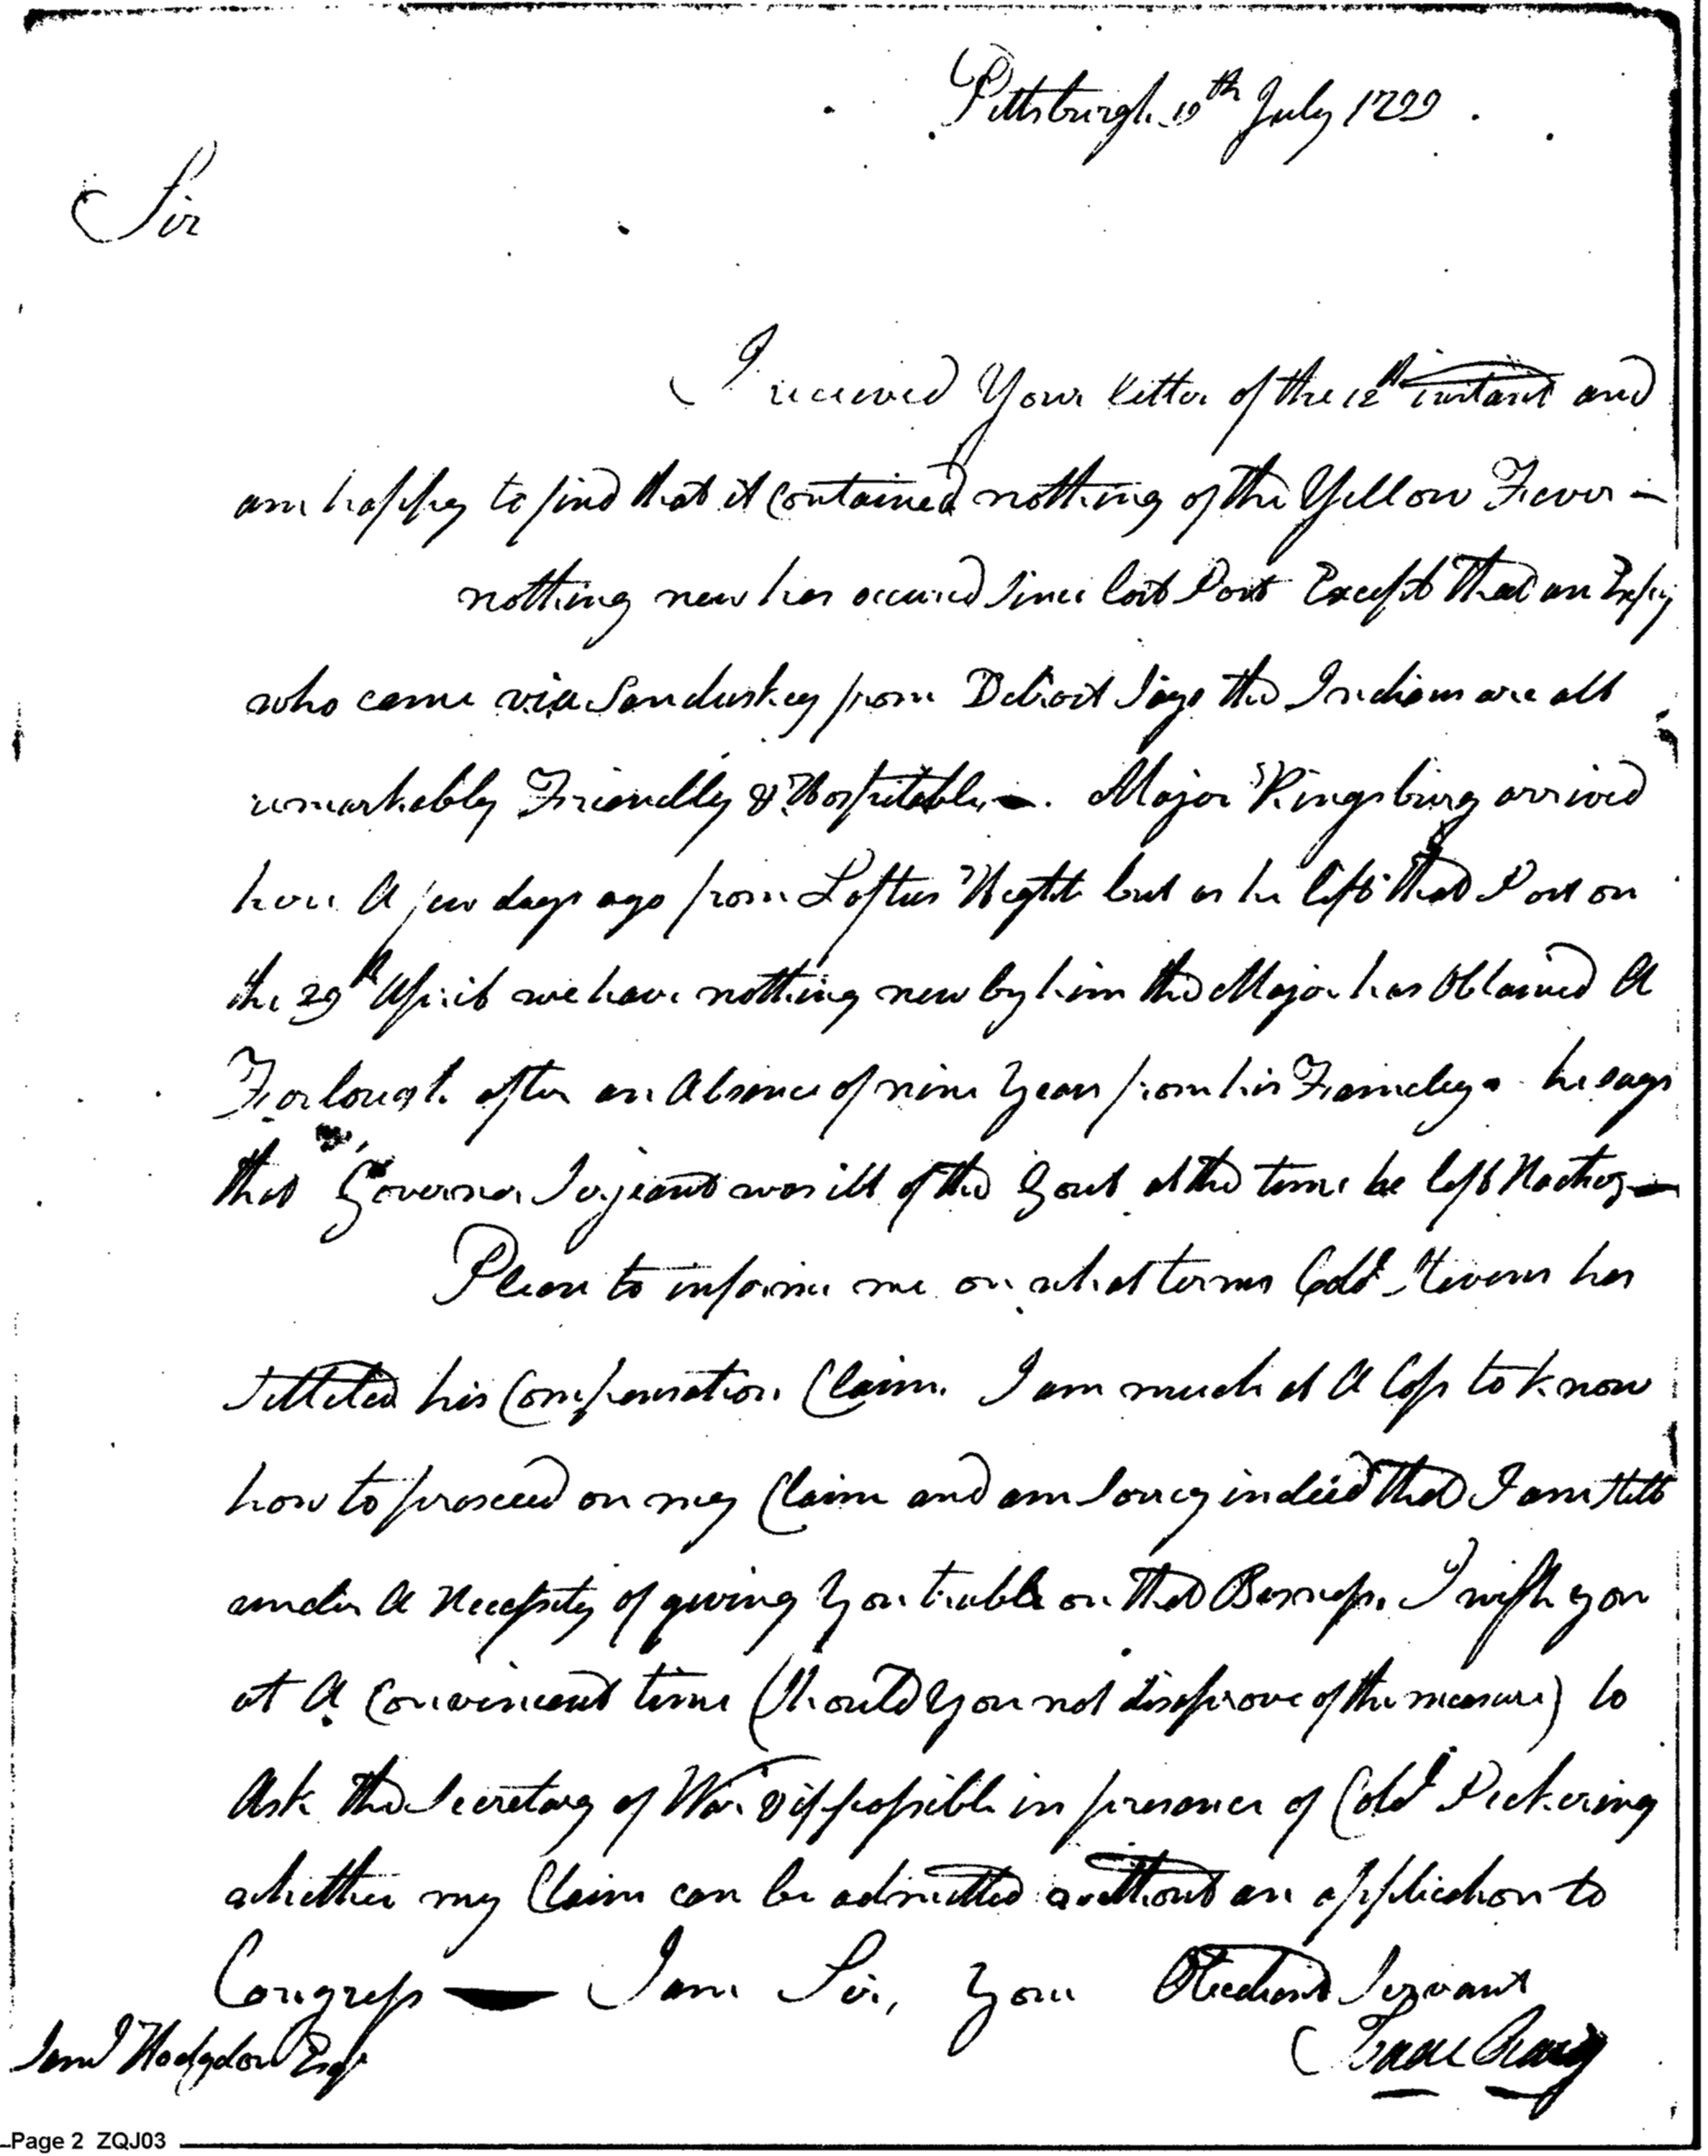 Pittsburgh 19th July 1799
Sir
I received Your letter of the 12th instant and
am happy to find that it Contained nothing of the Yellow Fever —
nothing new has occured Since last Post Except that an
who came via Sandusky from Detroit Says the Indians are all
remarkably Friendly & Hospitable —. Major Kingsbury arrived
here A few days ago from Loftus Height but as he left that Post on
the 29th April we have nothing new by him the Major has Obtained A
Forlough after an Absence of nine Years from his Family he says
that Governor Serjeant was ill of the Gout at the time he left Natchez —
Please to inform me on what terms Coll. Stevens has
Settled his Compensation Claim. I am much at A loss to know
how to proceed on my Claim and am sorry indeed that I am still
under A Necessity of giving You trouble on that Business. I wish you
at A Convenient time (Should You not disaprove of the measure) to
Ask the Secretary of War & if possible in presence of Coll. Pickering
whether my Claim can be admitted without an application to
Congress — I am Sir, Your Obedient Servant
Isaac Craig
Saml Hodgdon Esqr
Page 2 ZQJ03